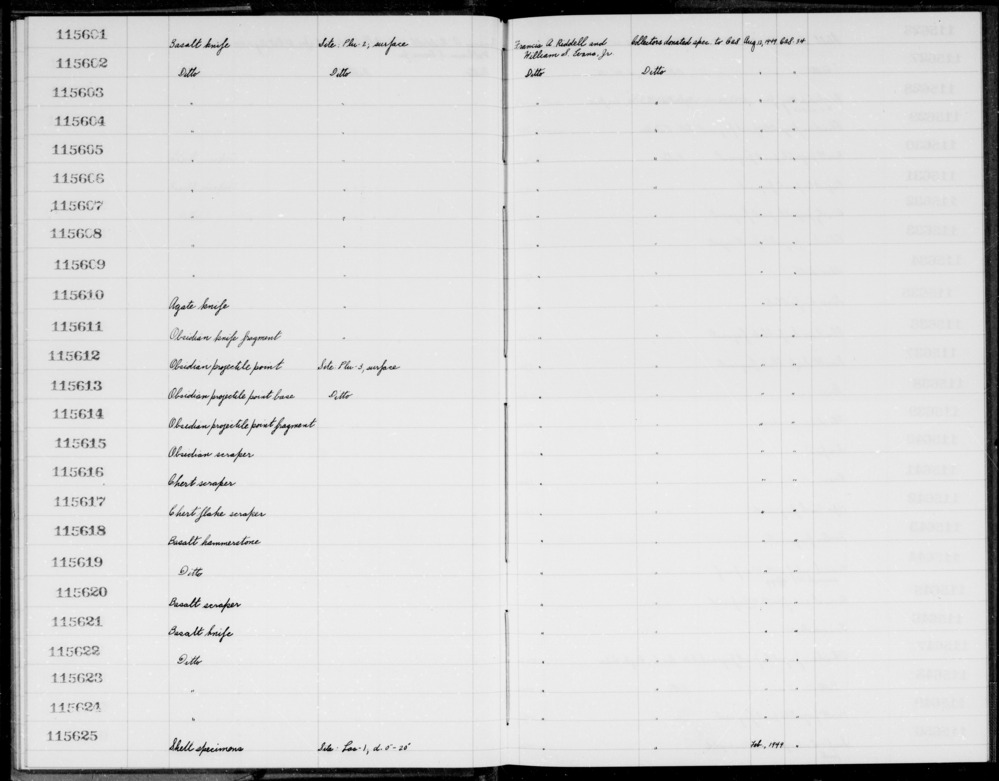 115601 Basalt knife Site: Plu-2, surface Francis A. Riddell and William S. Evans, Jr Collectors donated spec. to Cal Aug 12, 1949 Cal. 34
115602 Ditto Ditto Ditto Ditto " "
115603 " " " " " "
115604 " " " " " "
115605 " " " " " "
115606 " " " " " "
115607 " " " " " "
115608 " " " " " "
115609 " " " " " "
115610 Agate knife " " " " "
115611 Obsidian knife fragment " " " " "
115612 Obsidian projectile point Site: Plu-3, surface " " " "
115613 Obsidian projectile point base Ditto " " " "
115614 Obsidian projectile point fragment " " " "
115615 Obsidian scraper " " " "
115616 Chert scraper " " " "
115617 Chert flake scraper " " " "
115618 Basalt hammerstone " " " "
115619 Ditto " " " "
115620 Basalt scraper " " " "
115621 Basalt knife " " " "
115622 Ditto " " " "
115623 " " " " "
115624 " " " " "
115625 Shell specimens Site: Las-1, d. 0"-20" " " Feb., 1949 "